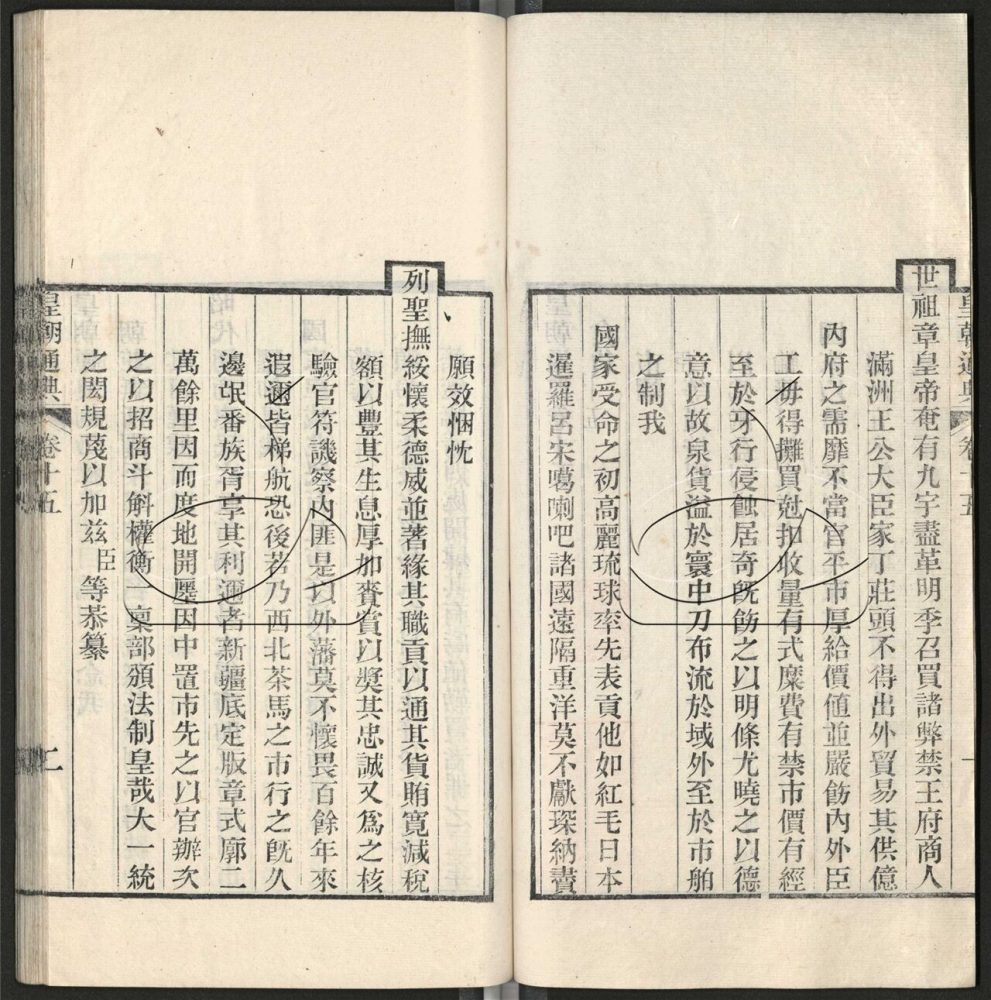 世祖章皇帝奄有九宇盡革明季召買諸弊禁王府商人
滿洲王公大臣家丁莊頭不得出外貿易其供億
內府之需靡不當官平市厚給價值並嚴飭內外臣
工毋得攤買尅扣收量有式糜費有禁市價有經
至於牙行侵蝕居奇旣飭之以明條尤曉之以德
意以故泉貨溢於寰中刀布流於域外至於市舶
之制我
國家受命之初高麗琉球率先表貢他如紅毛日本
暹羅呂宋噶喇吧諸國遠隔重洋莫不獻琛納賮
願效悃忱
列聖撫綏懷柔德威並著緣其職貢以通其貨賄寬減稅
額以豐其生息厚加賚賞以奬其忠誠又爲之核
驗官符譏察內匪是以外藩莫不懷畏百餘年來
遐邇皆梯航恐後若乃西北茶馬之市行之旣久
邊氓番族胥享其利邇者新疆底定版章式廓二
萬餘里因而度地開㕓因中置市先之以官辦次
之以招商斗斛權衡一稟部頒法制皇哉大一統
之閎規蔑以加茲臣等恭纂
皇朝通典
卷十五
二
皇朝通典
卷十五